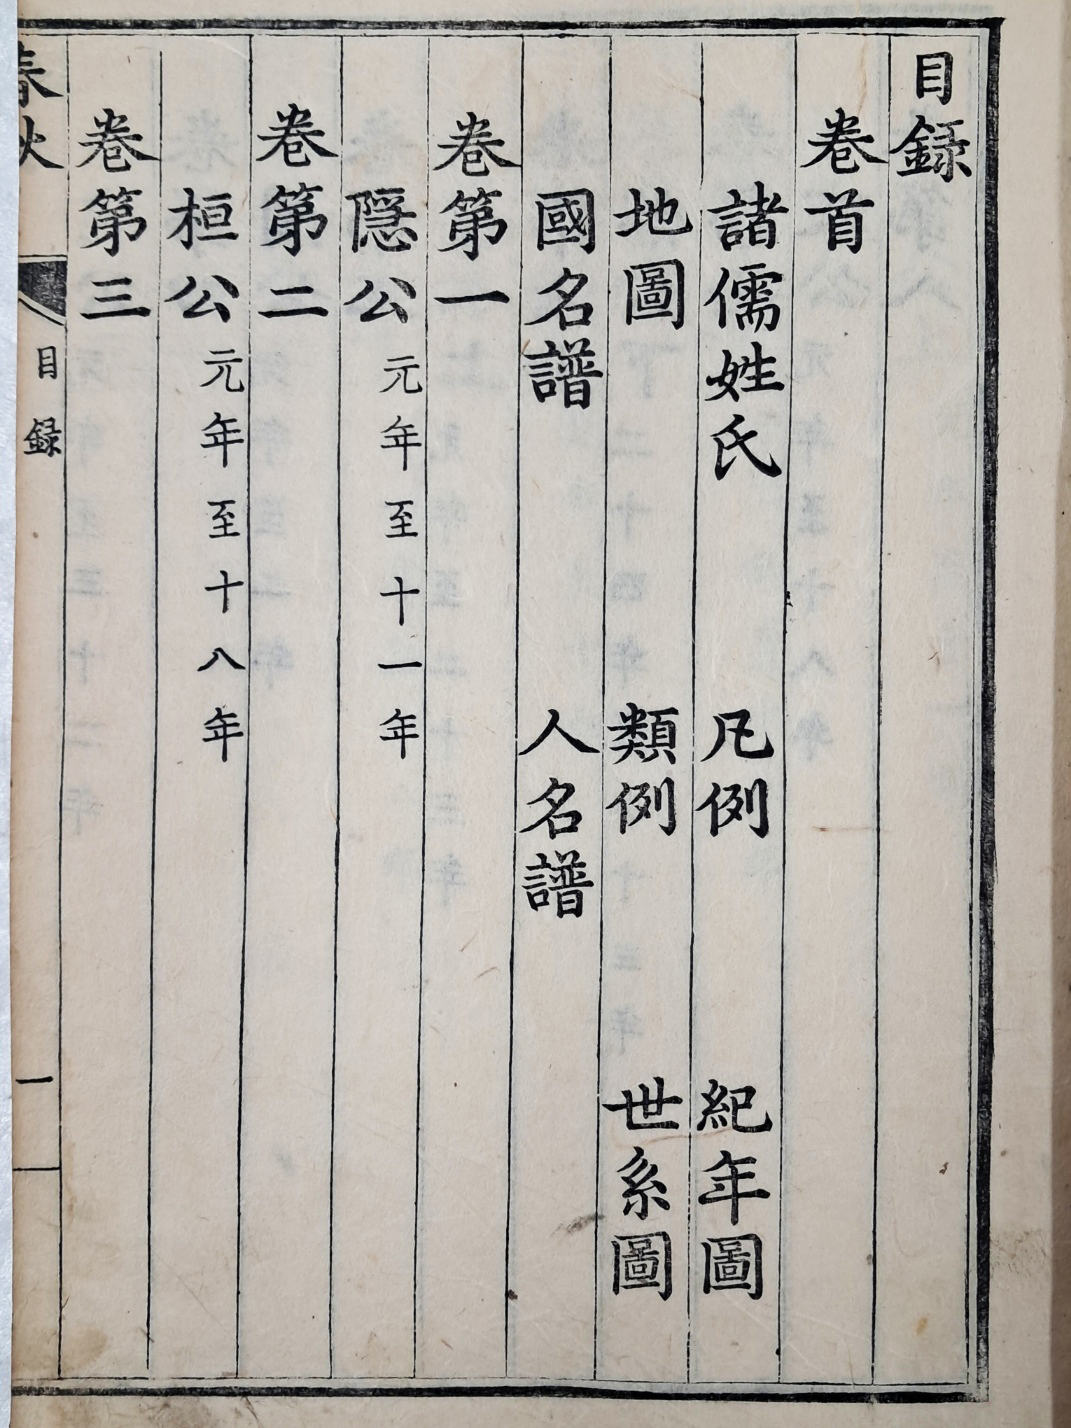 目録
卷首
諸儒姓氏 凡例 紀年圖
地圖 類例 世系圖
國名譜 人名譜
卷第一
隱公元年至十一年
卷第二
桓公元年至十八年
卷第三
春秋 目録 一